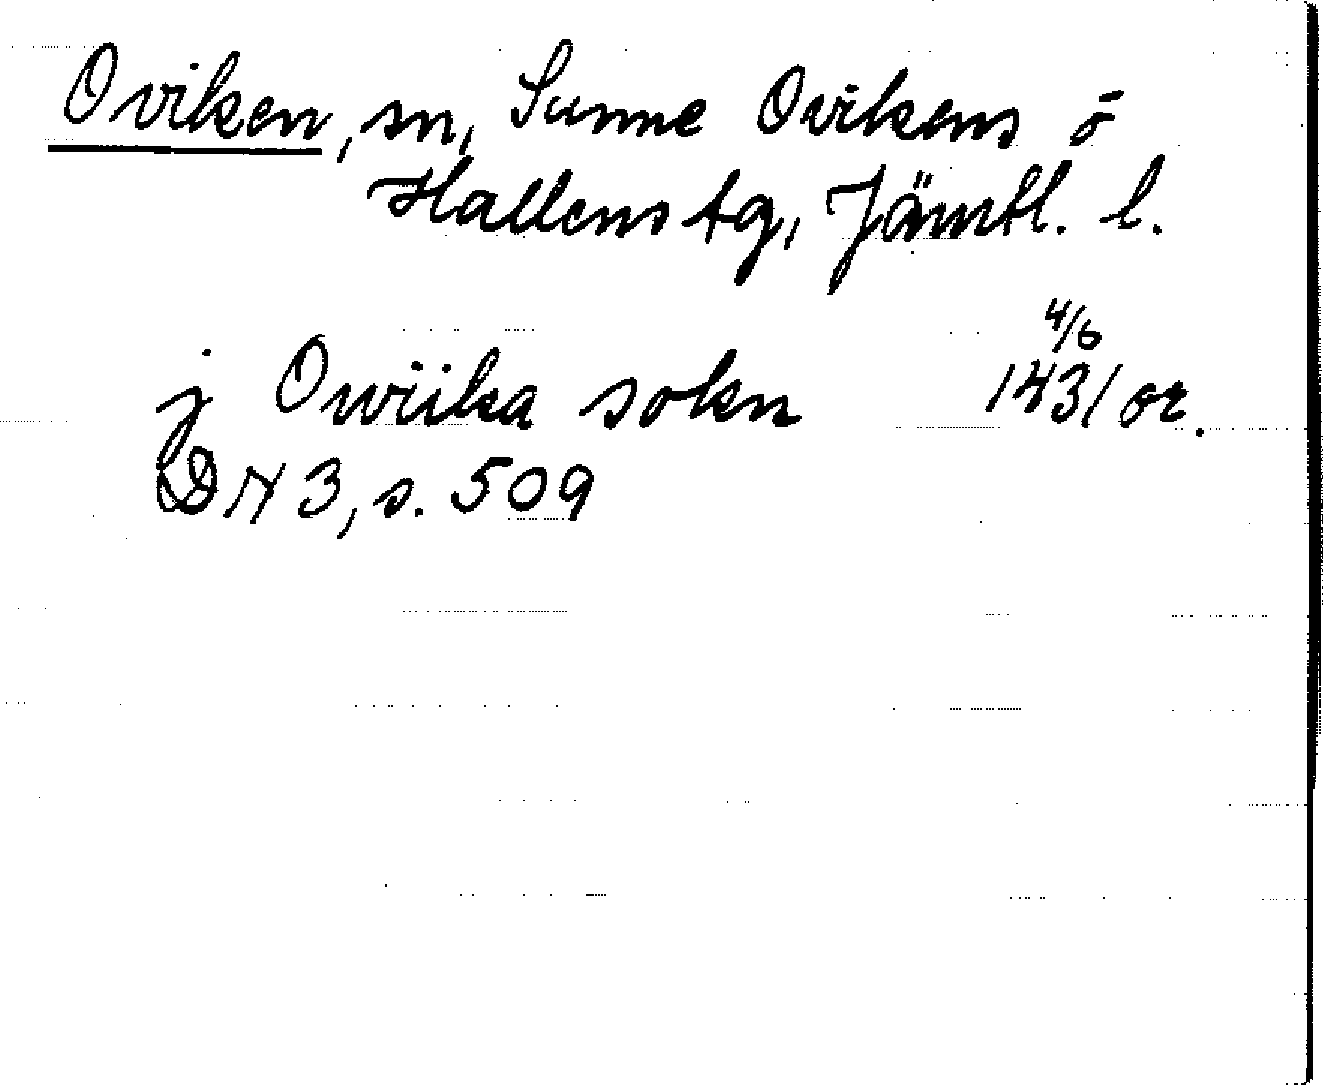 Oviken, sn, Sunne Ovikens o
Hallens tg, Jämtl. l.
j Owiika sokn 4/6 1431 or.
DN 3, s. 509